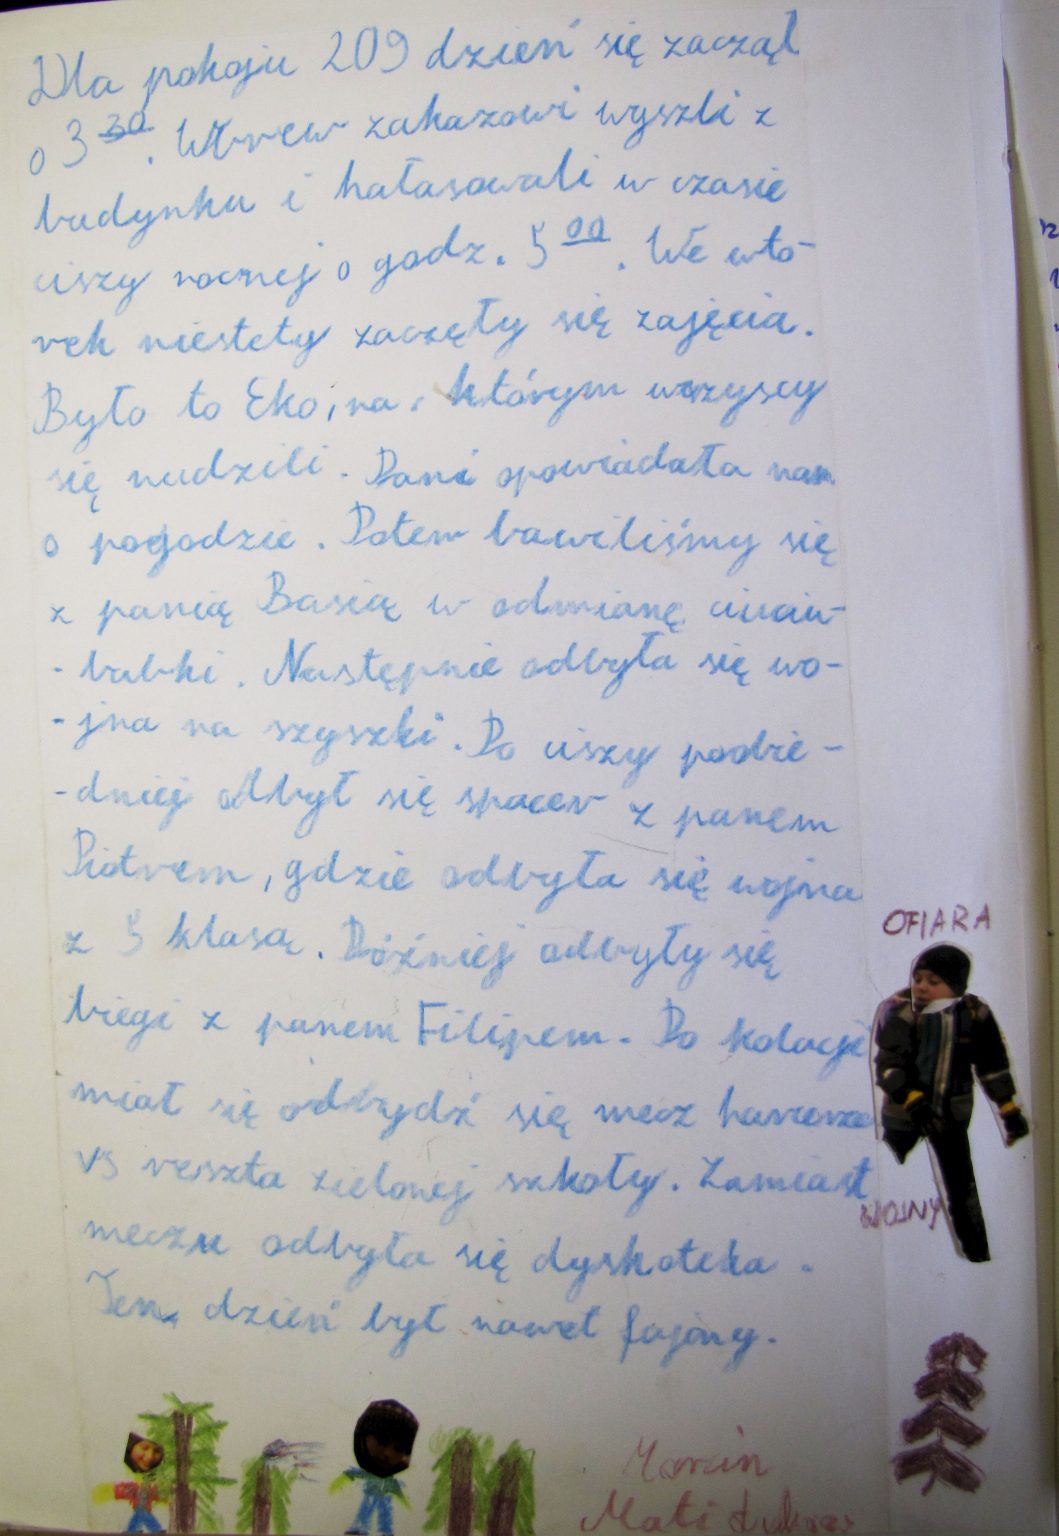 Dla pokoju 209 dzień się zaczął
o 3 30. Wbrew zakazowi wyszli z
budynku i hałasowali w czasie
ciszy nocnej o godz. 5 00. We wto-
rek niestety zaczęły się zajęcia.
Było to Eko, na, którym wszyscy
się nudzili. Pani opowiadała nam
o pogodzie. Potem bawiliśmy się
z panią Basią w odmianę ciuciu-
-babki. Następnie odbyła się wo-
-jna na szyszki. Po ciszy pobie-
-dniej odbył się spacer z panem
Piotrem, gdzie odbyła się wojna
z 5 klasą. Później odbyły się
biegi z panem Filipem. Po kolacji
miał się odbydź się mecz harcerze
VS reszta zielonej szkoły. Zamiast
meczu odbyła się dyskoteka.
Ten dzień był nawet fajny.
OFIARA
WOJNY
Marcin
Mati